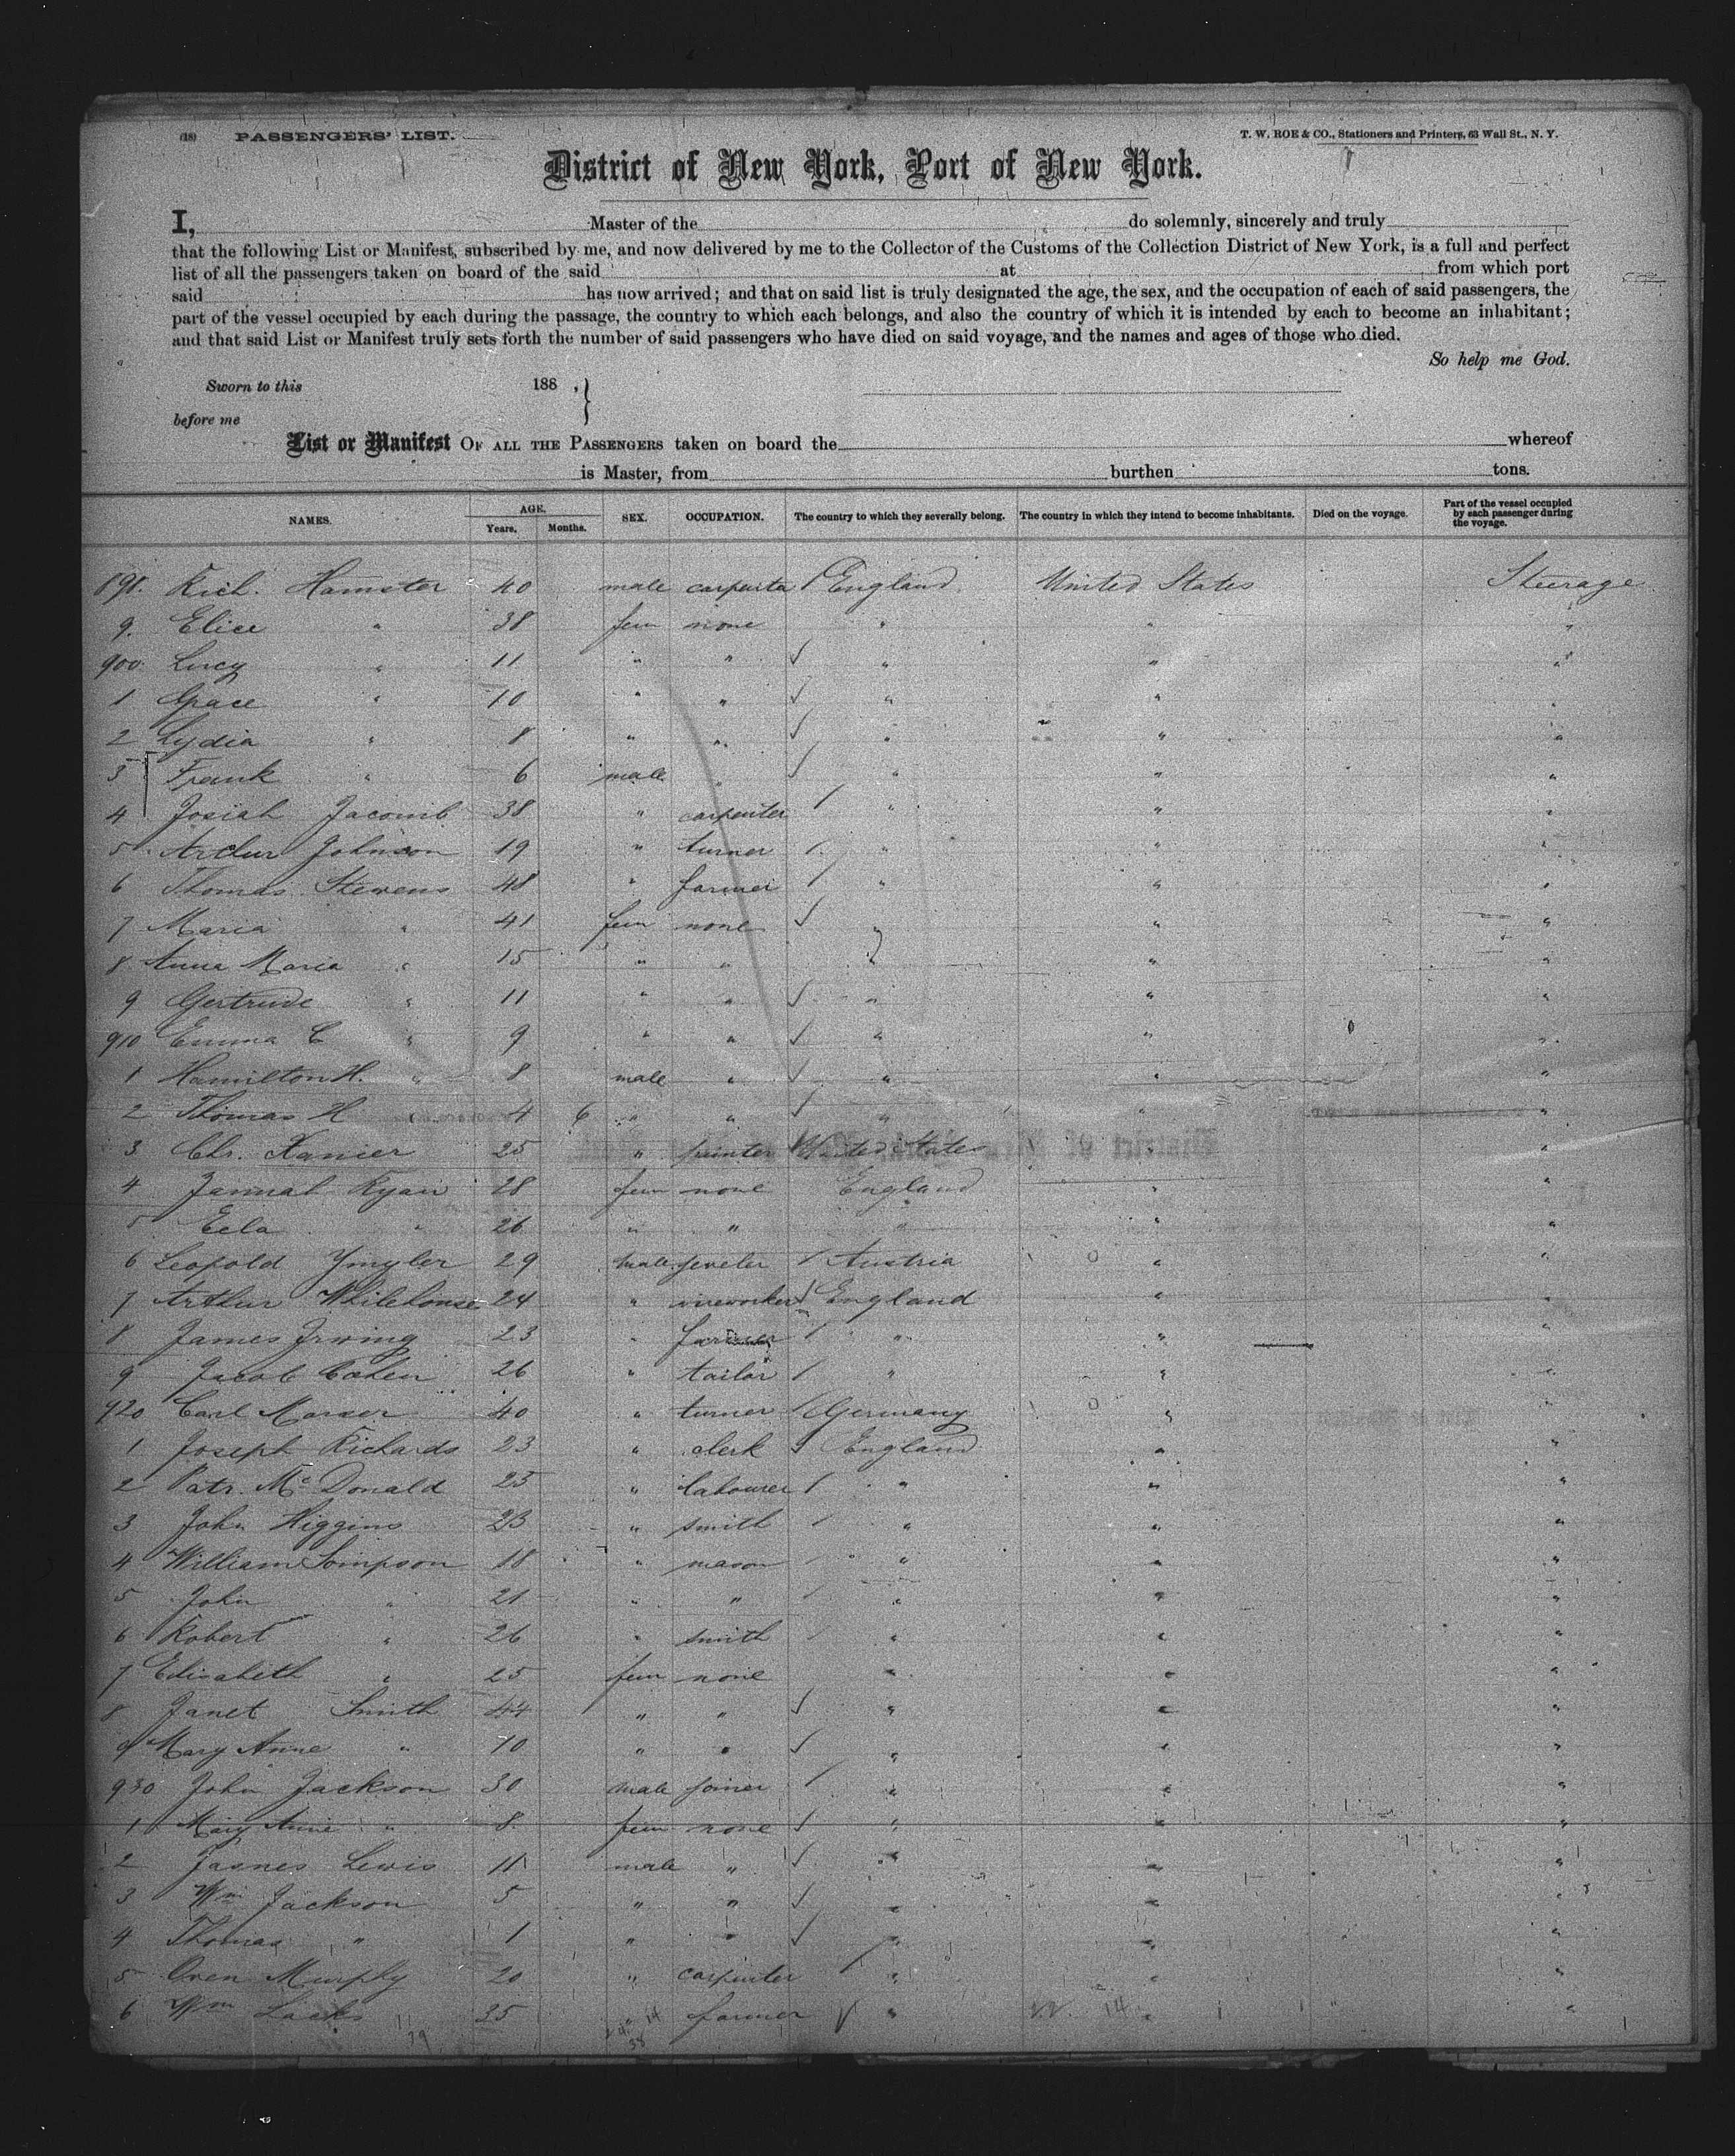 (18) PASSENGERS' LIST. T. W. ROE & CO., Stationers and Printers, 63 Wall St., N. Y.
District of New York, Port of New York.
I, Master of the do solemnly, sincerely and truly
that the following List or Manifest, subscribed by me, and now delivered by me to the Collector of the Customs of the Collection District of New York, is a full and perfect
list of all the passengers taken on board of the said at from which port
said has now arrived; and that on said list is truly designated the age, the sex, and the occupation of each of said passengers, the
part of the vessel occupied by each during the passage, the country to which each belongs, and also the country of which it is intended by each to become an inhabitant;
and that said List or Manifest truly sets forth the number of said passengers who have died on said voyage, and the names and ages of those who died.
So help me God.
Sworn to this 188 , }
before me
List or Manifest OF ALL THE PASSENGERS taken on board the whereof
is Master, from burthen tons.
NAMES. AGE. Years. Months. SEX. OCCUPATION. The country to which they severally belong. The country in which they intend to become inhabitants. Died on the voyage. Part of the vessel occupied by each passenger during the voyage.
898. Rich. Hamster 40 male carpenter England United States Steerage
9. Elice " 38 fem none " " "
900. Lucy " 11 " " " " "
1 Grace " 10 " " " " "
2 Lydia " 8 " " " " "
3 Frank " 6 male " " " "
4 Josiah Jacomb 38 " carpenter " " "
5 Arthur Johnson 19 " turner " " "
6 Thomas Stevens 48 " farmer " " "
7 Maria " 41 fem none " " "
8 Anna Maria " 15 " " " " "
9 Gertrude " 11 " " " " "
910 Emma C " 9 " " " " "
1 Hamilton H. " 8 male " " " "
2 Thomas H " 4 6 " " " " "
3 Chr. 25 " United States " "
4 Ryan 28 fem none England " "
5 " 26 " " " " "
6 Leopold 29 male jeweler Austria " "
7 Arthur Whitehouse 24 " wireworker England " "
8 James Irwing 23 " farmer " " "
9 Jacob Cohen 26 " tailor " " "
920 Carl 40 " turner Germany " "
1 Joseph Richards 23 " clerk England " "
2 Patr. Mc Donald 25 " labourer " " "
3 John Higgins 23 " smith " " "
4 William Sompson 18 " mason " " "
5 John " 21 " " " " "
6 Robert " 26 " smith " " "
7 Elisabeth " 25 fem none " " "
8 Janet Smith 44 " " " " "
9 Mary Anne " 10 " " " " "
930 John Jackson 30 male joiner " " "
1 Mary Anne " 8 fem none " " "
2 James Lewis 11 male " " " "
3 Wm Jackson 5 " " " " "
4 Thomas " 1 " " " " "
5 Oven Murphy 20 " carpenter " " "
6 Wm 35 " farmer " " "